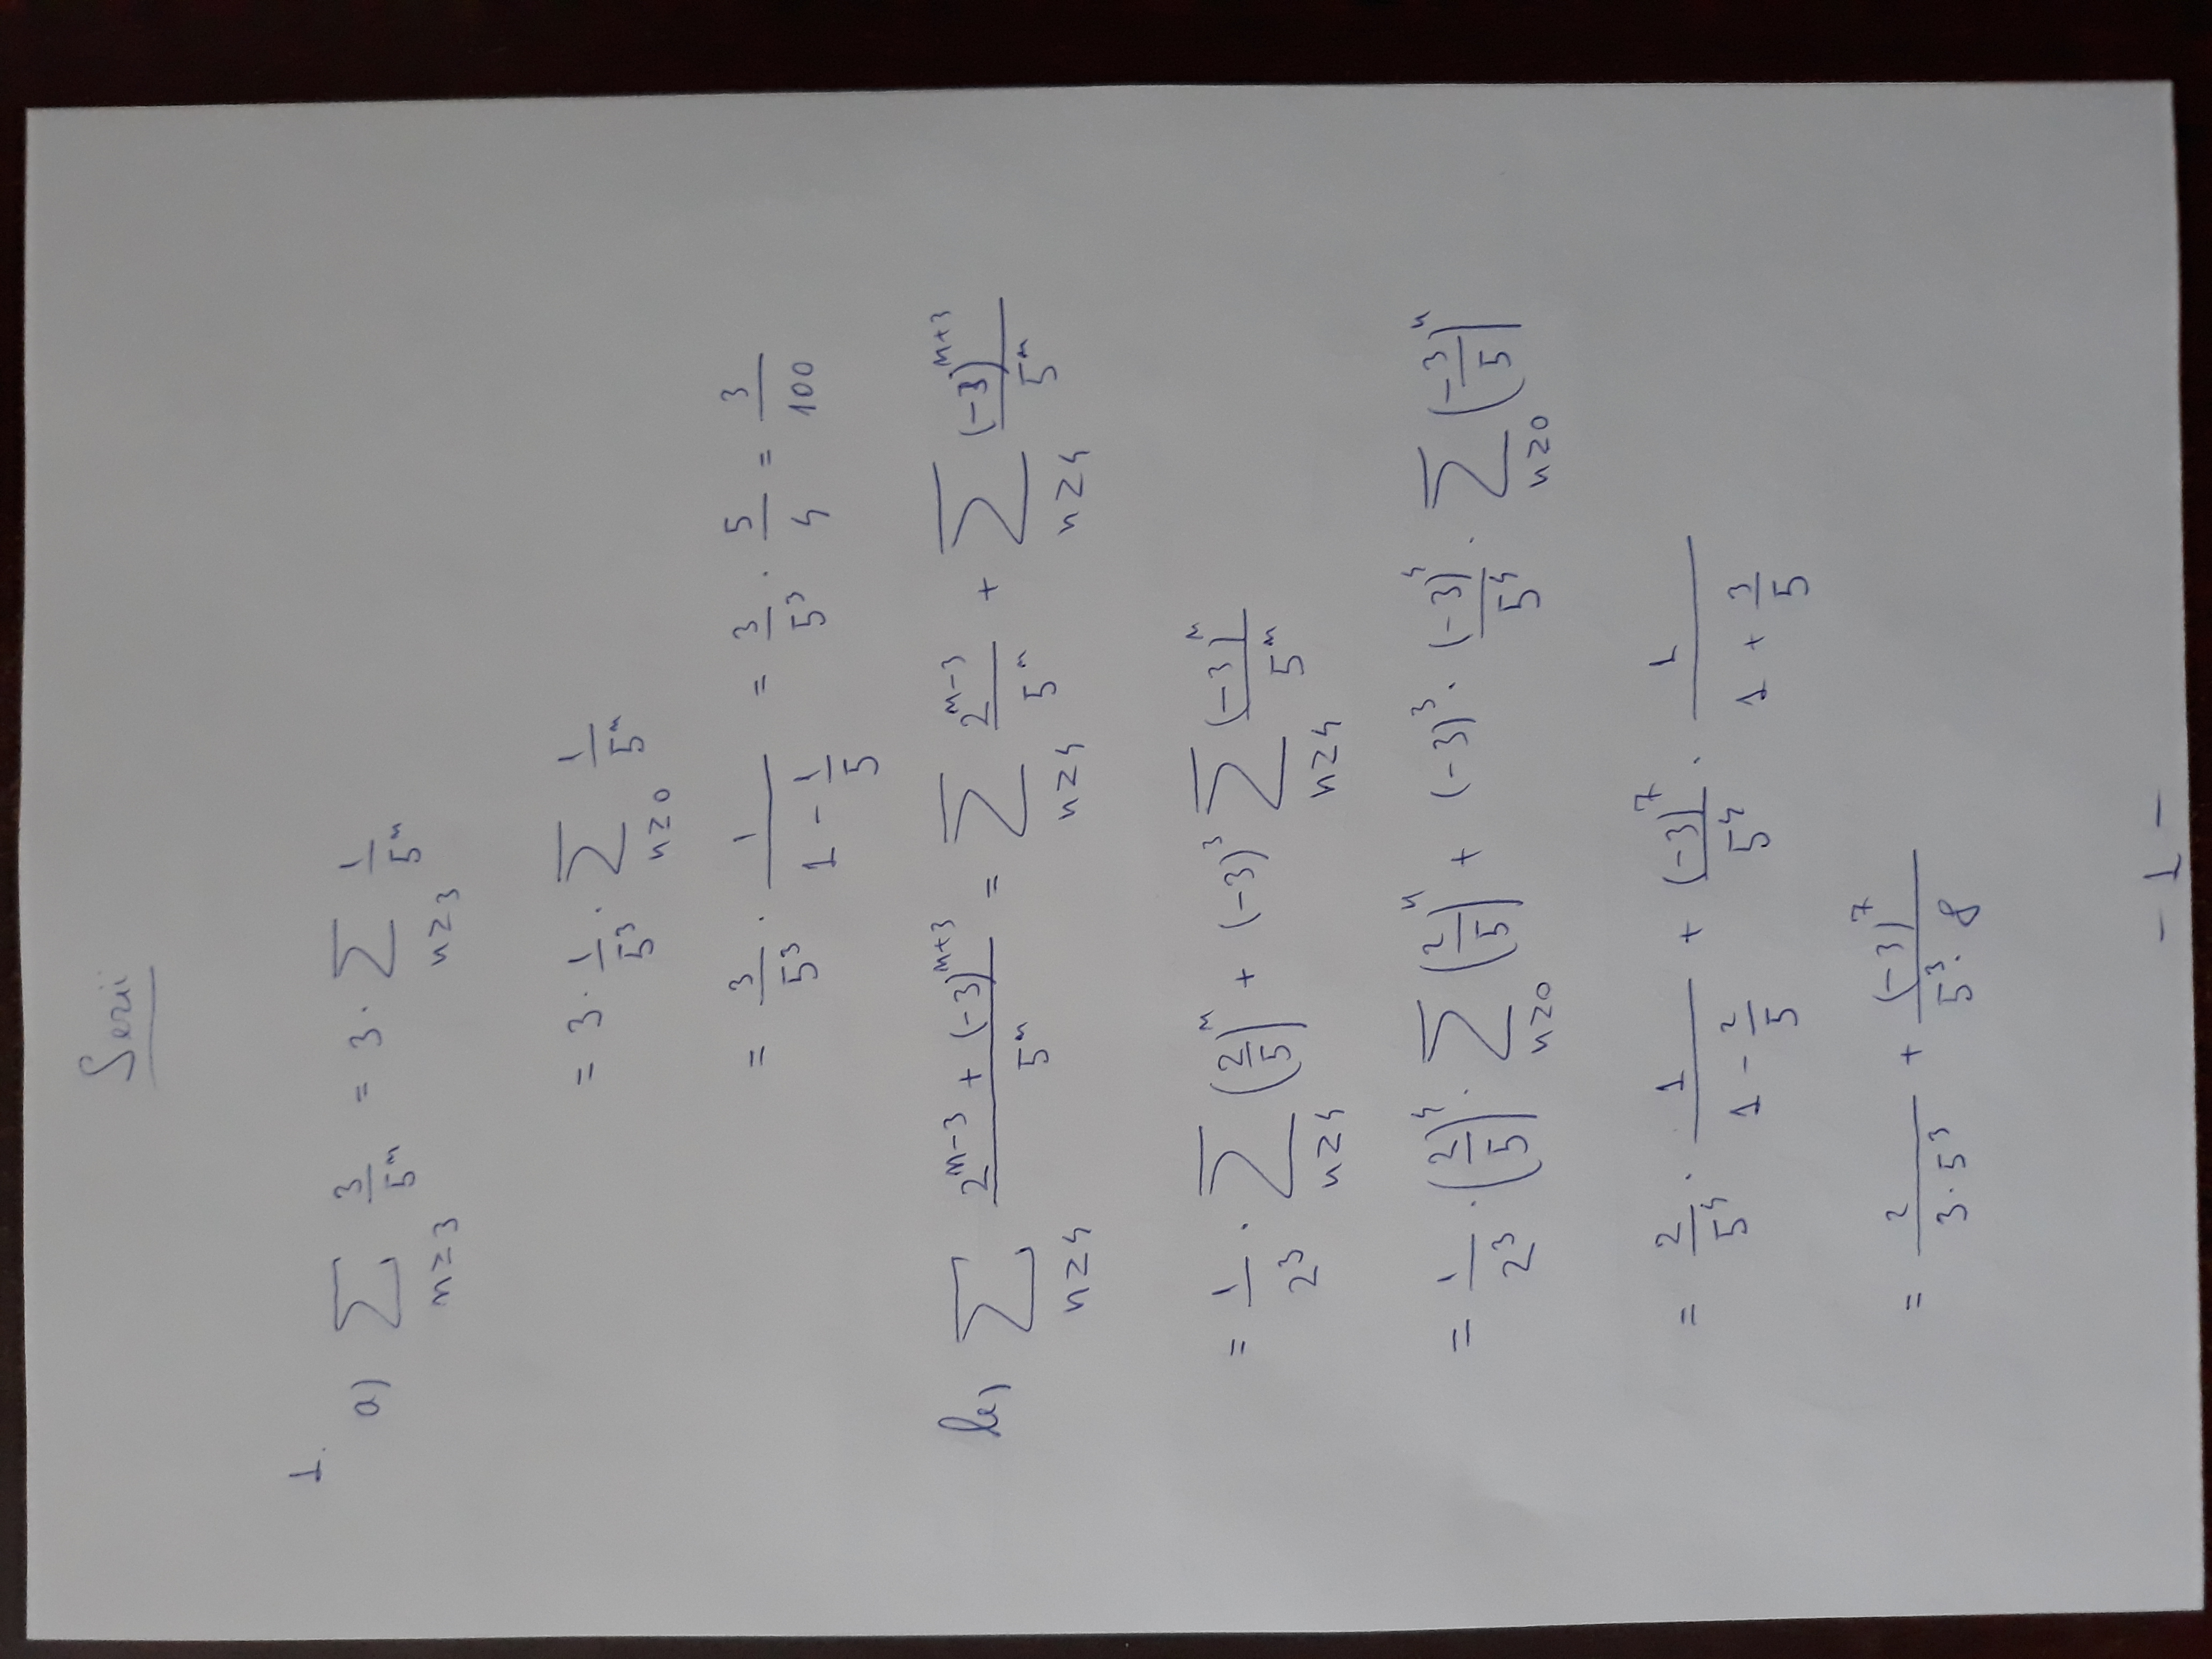 Serii
1.
a) ∑_{n≥3} 3/5^n = 3 · ∑_{n≥3} 1/5^n
= 3 · 1/5^3 · ∑_{n≥0} 1/5^n
= 3/5^3 · 1/(1 - 1/5) = 3/5^3 · 5/4 = 3/100
b) ∑_{n≥4} (2^{n-3} + (-3)^{n+3})/5^n = ∑_{n≥4} 2^{n-3}/5^n + ∑_{n≥4} (-3)^{n+3}/5^n
= 1/2^3 · ∑_{n≥4} (2/5)^n + (-3)^3 ∑_{n≥4} (-3)^n/5^n
= 1/2^3 · (2/5)^4 · ∑_{n≥0} (2/5)^n + (-3)^3 · (-3)^4/5^4 · ∑_{n≥0} (-3/5)^n
= 2/5^4 · 1/(1 - 2/5) + (-3)^7/5^4 · 1/(1 + 3/5)
= 2/(3 · 5^3) + (-3)^7/(5^3 · 8)
- 1 -